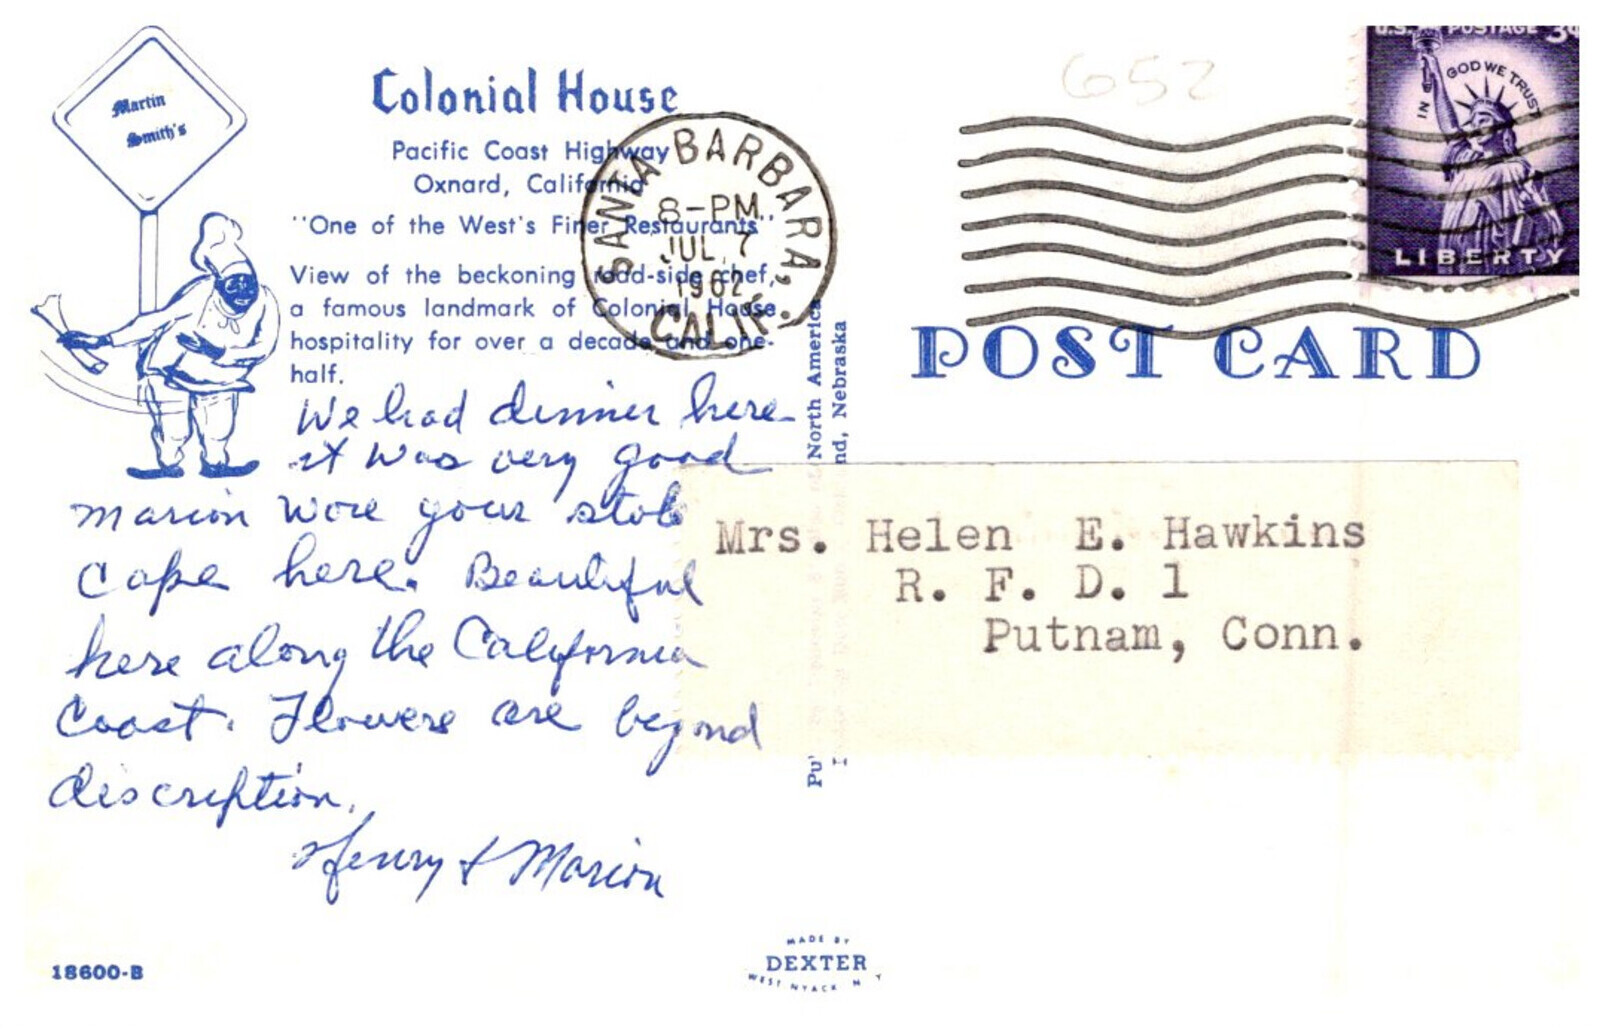 Martin
Smith's
Colonial House
Pacific Coast Highway
Oxnard, California
"One of the West's Finer Restaurants"
View of the beckoning road-side chef,
a famous landmark of Colonial House
hospitality for over a decade and one-
half.
We had dinner here
it was very good
Marion wore your stole
Cape here. Beautiful
here along the California
Coast. Flowers are beyond
discription.
Henry & Marion
18600-B
SANTA BARBARA, CALIF.
8-PM
JUL 7
1962
652
U.S. POSTAGE 3¢
IN GOD WE TRUST
LIBERTY
POST CARD
North America
nd, Nebraska
Mrs. Helen E. Hawkins
R. F. D. 1
Putnam, Conn.
MADE BY
DEXTER
WEST NYACK N Y